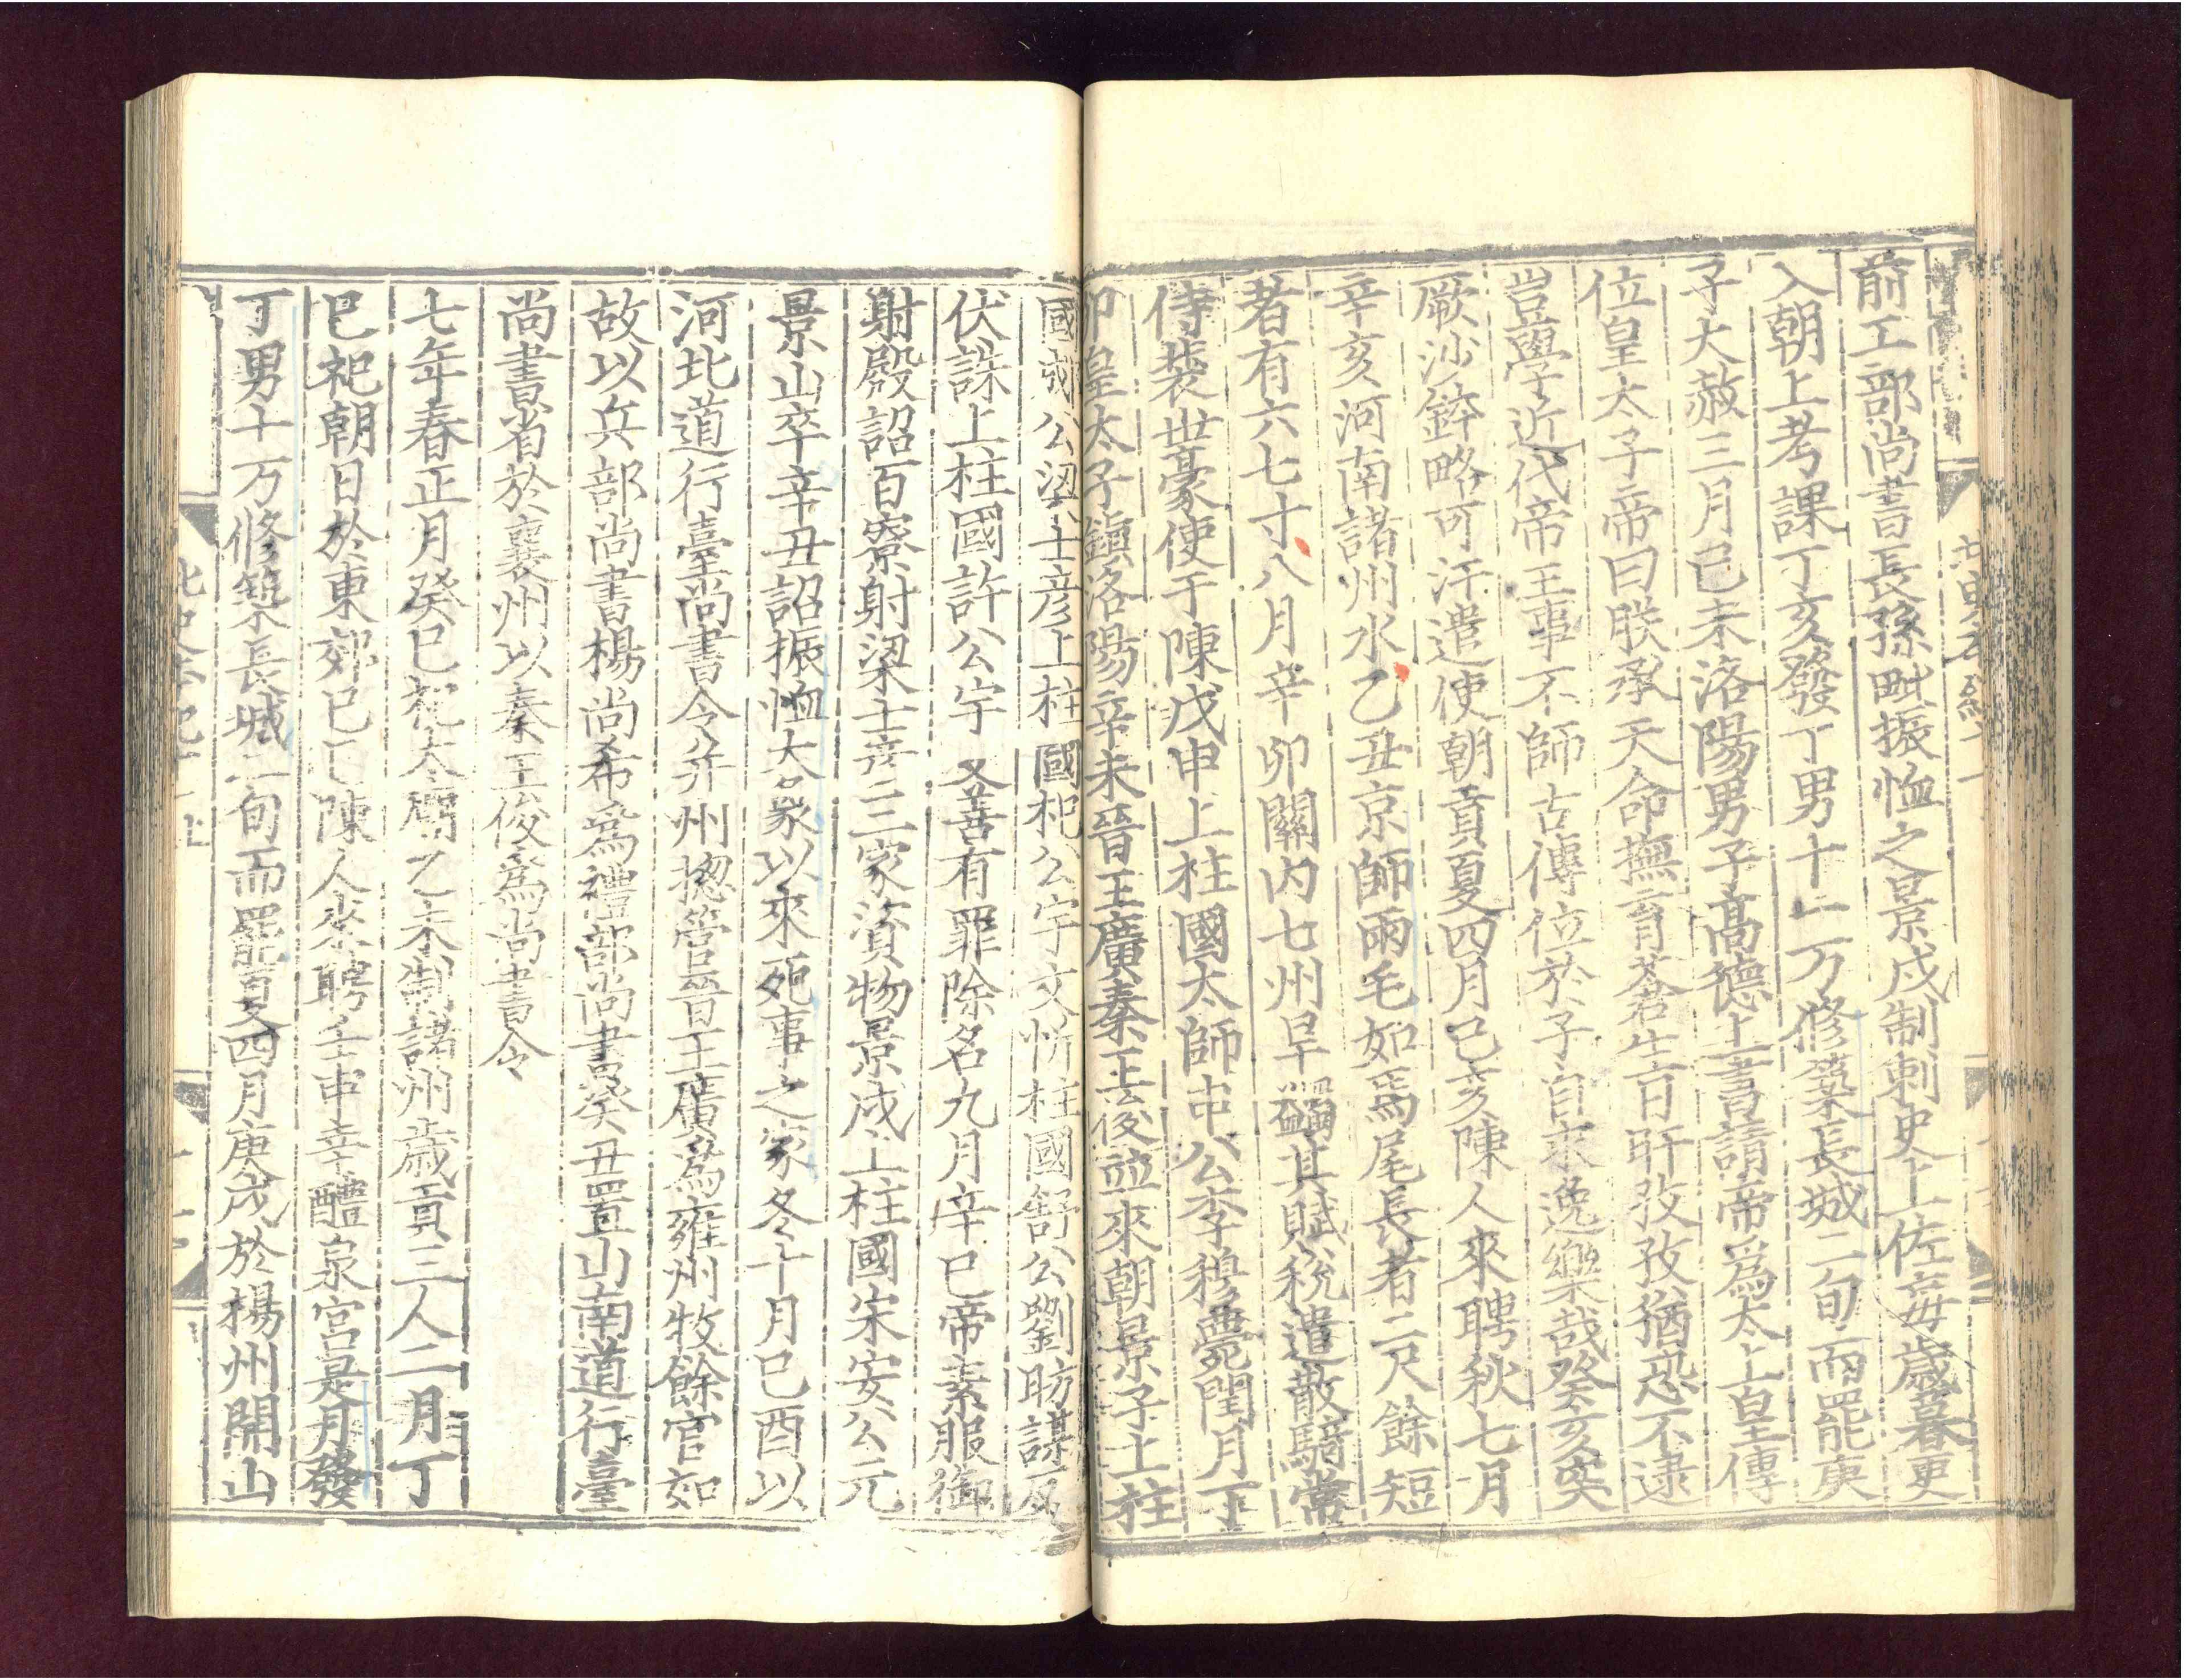 前工部尚書長孫毗振恤之景戌制刺史上佐每歲暮更
入朝上考課丁亥發丁男十一万修築長城二旬而罷庚
子大赦三月己未洛陽男子高德上書請帝爲太上皇傳
位皇太子帝曰朕承天命撫育蒼生日旰孜孜猶恐不逮
豈學近代帝王事不師古傳位於子自求逸樂哉癸亥突
厥沙鉢略可汗遣使朝貢夏四月己亥陳人來聘秋七月
辛亥河南諸州水乙丑京師雨毛如馬尾長者二尺餘短
者有六七寸八月辛卯關內七州旱蠲其賦稅遣散騎常
侍裴世豪使于陳戊申上柱國太師申公李穆薨閏月丁
卯皇太子鎮洛陽辛未晉王廣秦王俊並來朝景子上柱
國郕公梁士彥上柱國杞公宇文忻柱國舒公劉昉謀反
伏誅上柱國許公宇文善有罪除名九月辛巳帝素服御
射殿詔百寮射梁士彥三家資物景戌上柱國宋安公元
景山卒辛丑詔振恤大象以來死事之家冬十月己酉以
河北道行臺尚書令并州揔管晉王廣爲雍州牧餘官如
故以兵部尚書楊尚希爲禮部尚書癸丑置山南道行臺
尚書省於襄州以秦王俊爲尚書令
七年春正月癸巳祀太廟乙未制諸州歲貢三人二月丁
巳祀朝日於東郊己巳陳人來聘壬申幸醴泉宮是月發
丁男十万修築長城二旬而罷夏四月庚戌於楊州開山